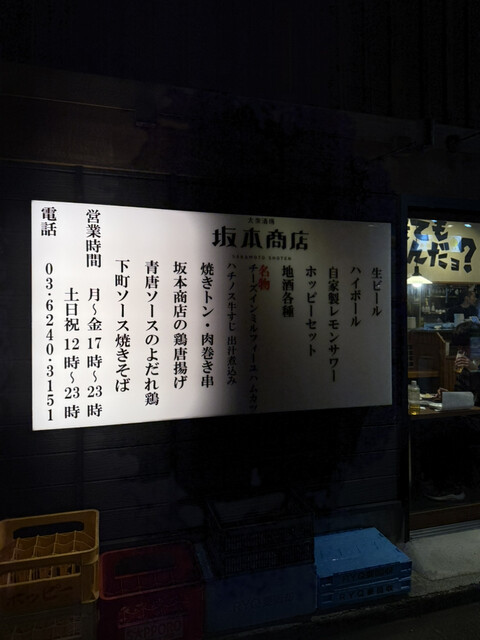 大衆酒場
坂本商店
SAKAMOTO SHOTEN
生ビール
ハイボール
自家製レモンサワー
ホッピーセット
地酒各種
名物
チーズインミルフィーユハムカツ
ハチノス牛すじ 出汁煮込み
焼きトン・肉巻き串
坂本商店の鶏唐揚げ
青唐ソースのよだれ鶏
下町ソース焼きそば
営業時間 月〜金 17時〜23時
土日祝 12時〜23時
電話 03.6240.3151
ても
んだョ?
ホッピー